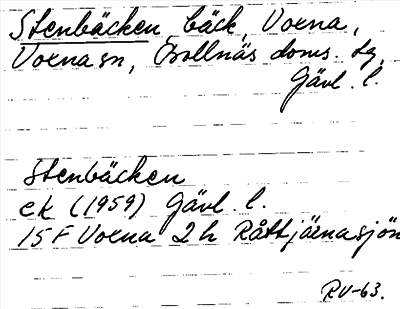 Stenbäcken, bäck, Voxna,
Voxna sn, Bollnäs doms. tg,
Gävl. l.
Stenbäcken
ek (1959) Gävl. l.
15F Voxna 2h Råttjärnasjön
RV-63.